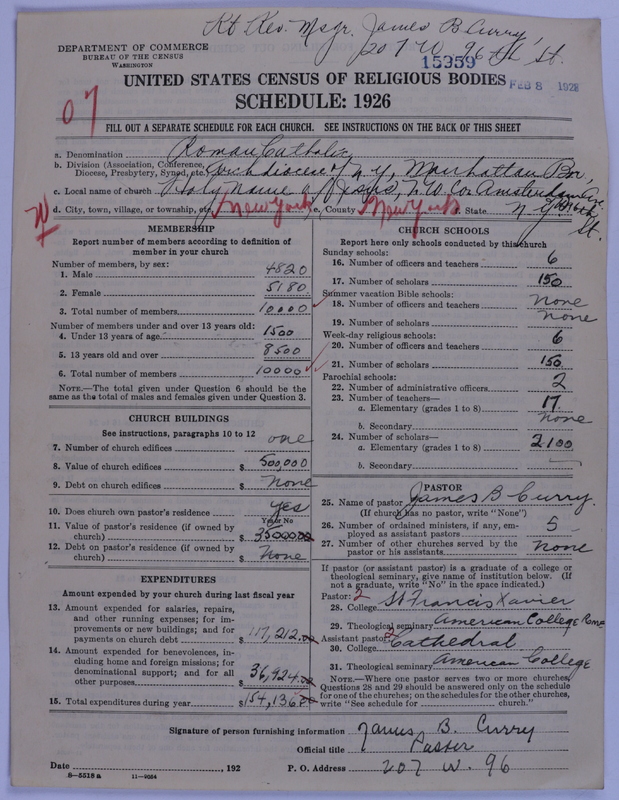 Rt Rev. Msgr. James B Curry,
207 W. 96th St.
DEPARTMENT OF COMMERCE
BUREAU OF THE CENSUS
WASHINGTON
15359
FEB 8 1928
UNITED STATES CENSUS OF RELIGIOUS BODIES
SCHEDULE: 1926
07
FILL OUT A SEPARATE SCHEDULE FOR EACH CHURCH. SEE INSTRUCTIONS ON THE BACK OF THIS SHEET
a. Denomination Roman Catholic
b. Division (Association, Conference, Diocese, Presbytery, Synod, etc.) Archdiocese of N.Y, Manhattan Bor,
c. Local name of church Holy Name of Jesus, N.W. Cor Amsterdam Ave.
d. City, town, village, or township, etc. New York e. County New York f. State N.Y. St.
MEMBERSHIP
Report number of members according to definition of
member in your church
Number of members, by sex:
1. Male 4820
2. Female 5180
3. Total number of members 10000
Number of members under and over 13 years old:
4. Under 13 years of age 1500
5. 13 years old and over 8500
6. Total number of members 10000
NOTE.—The total given under Question 6 should be the
same as the total of males and females given under Question 3.
CHURCH BUILDINGS
See instructions, paragraphs 10 to 12
7. Number of church edifices one
8. Value of church edifices $ 500,000
9. Debt on church edifices $ None
10. Does church own pastor's residence yes
Yes or No
11. Value of pastor's residence (if owned by
church) $ 35000.00
12. Debt on pastor's residence (if owned by
church) $ None
EXPENDITURES
Amount expended by your church during last fiscal year
13. Amount expended for salaries, repairs,
and other running expenses; for im-
provements or new buildings; and for
payments on church debt $ 117,212.00
14. Amount expended for benevolences, in-
cluding home and foreign missions; for
denominational support; and for all
other purposes $ 36,924.00
15. Total expenditures during year $ 154,136.00
CHURCH SCHOOLS
Report here only schools conducted by this church
Sunday schools:
16. Number of officers and teachers 6
17. Number of scholars 150
Summer vacation Bible schools:
18. Number of officers and teachers none
19. Number of scholars none
Week-day religious schools:
20. Number of officers and teachers 6
21. Number of scholars 150
Parochial schools:
22. Number of administrative officers 2
23. Number of teachers—
a. Elementary (grades 1 to 8) 17
b. Secondary none
24. Number of scholars—
a. Elementary (grades 1 to 8) 2100
b. Secondary
PASTOR
25. Name of pastor James B Curry.
(If church has no pastor, write "None")
26. Number of ordained ministers, if any, em-
ployed as assistant pastors 5
27. Number of other churches served by the
pastor or his assistants none
If pastor (or assistant pastor) is a graduate of a college or
theological seminary, give name of institution below. (If
not a graduate, write "No" in the space indicated.)
Pastor: 2
28. College St Francis Xavier
29. Theological seminary American College Rome
Assistant pastor: 2
30. College Cathedral
31. Theological seminary American College
NOTE.—Where one pastor serves two or more churches,
Questions 28 and 29 should be answered only on the schedule
for one of the churches; on the schedules for the other churches,
write "See schedule for church."
Signature of person furnishing information James B. Curry
Official title Pastor
Date , 192 P. O. Address 207 W. 96
8—5518a 11—9064